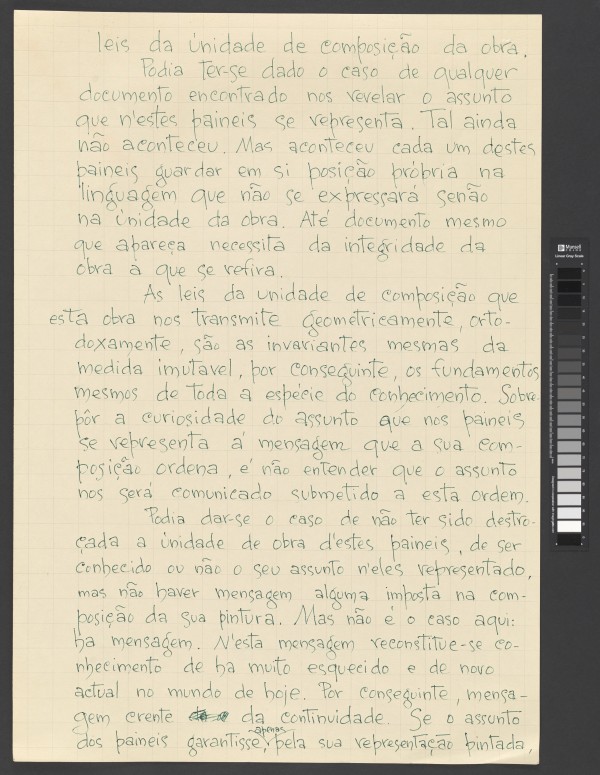 leis da únidade de composição da obra.
Podia ter-se dado o caso de qualquer
documento encontrado nos revelar o assunto
que n'estes paineis se representa. Tal ainda
não aconteceu. Mas aconteceu cada um destes
paineis guardar em si posição própria na
linguágem que não se expressará senão
na únidade da obra. Até documento mesmo
que apareça necessita da integridade da
obra à que se refira.
As leis da unidade de composição que
esta obra nos transmite geométricamente, orto-
doxamente, são as invariantes mesmas da
medida imutavel, por conseguinte, os fundamentos
mesmos de toda a espécie do conhecimento. Sobre-
pôr a curiosidade do assunto que nos paineis
se representa á mensagem que a sua com-
posição ordena, é não entender que o assunto
nos será comunicado submetido a esta ordem.
Podia dar-se o caso de não ter sido destro-
çada a únidade de obra d'estes paineis, de ser
conhecido ou não o seu assunto n'eles representado,
mas não haver mensagem alguma imposta na com-
posição da sua pintura. Mas não é o caso aqui:
ha mensagem. N'esta mensagem reconstitue-se co-
nhecimento de ha muito esquecido e de novo
actual no mundo de hoje. Por conseguinte, mensa-
gem crente da continuidade. Se o assunto
dos paineis garantisse, apenas pela sua representação pintada,